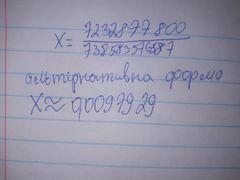 X = 7232877800
738583579887
альтернативна форма
X ≈ 0,0097929